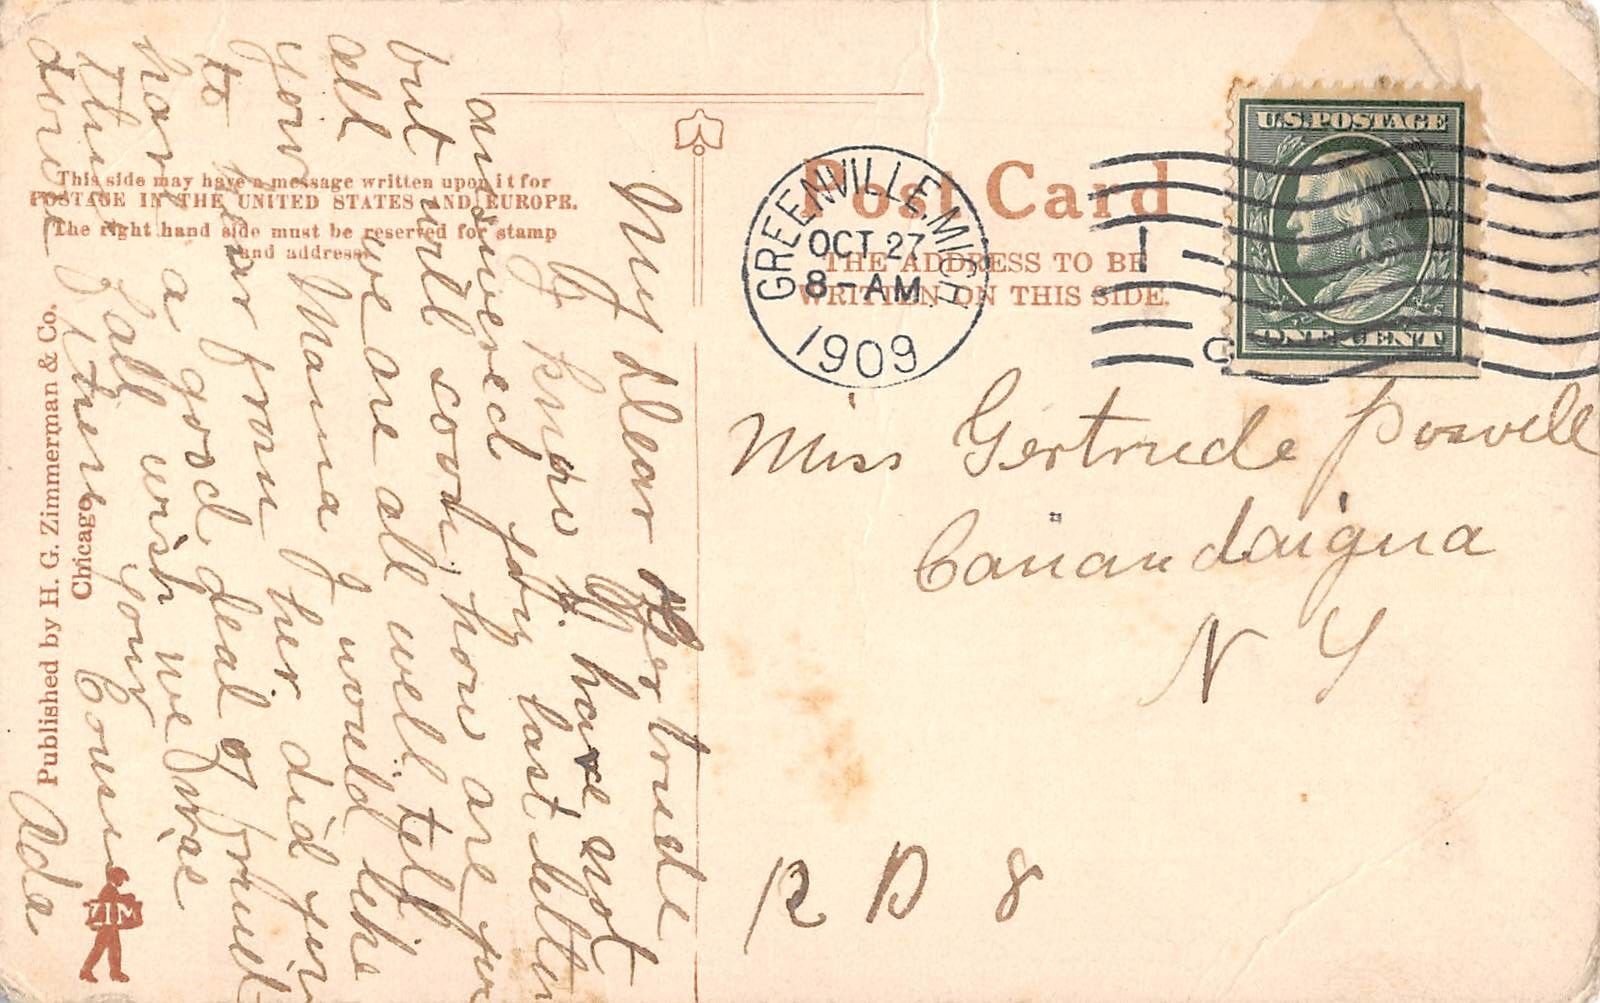 This side may have a message written upon it for
POSTAGE IN THE UNITED STATES AND EUROPE.
The right hand side must be reserved for stamp
and address.
Post Card
THE ADDRESS TO BE
WRITTEN ON THIS SIDE.
GREENVILLE, MICH.
OCT 27
8-AM
1909
U.S. POSTAGE
ONE CENT
Miss Gertrude
Canandaigua
N Y
R D 8
My Dear Gertrude
I know I have not
answered your last letter
but will soon, how are you
all we are all well. tell
your Mama I would like
to hear from her did you
have a good deal of fruit
this fall wish we was
there your Cousin
Ada
Published by H. G. Zimmerman & Co.
Chicago
ZIM